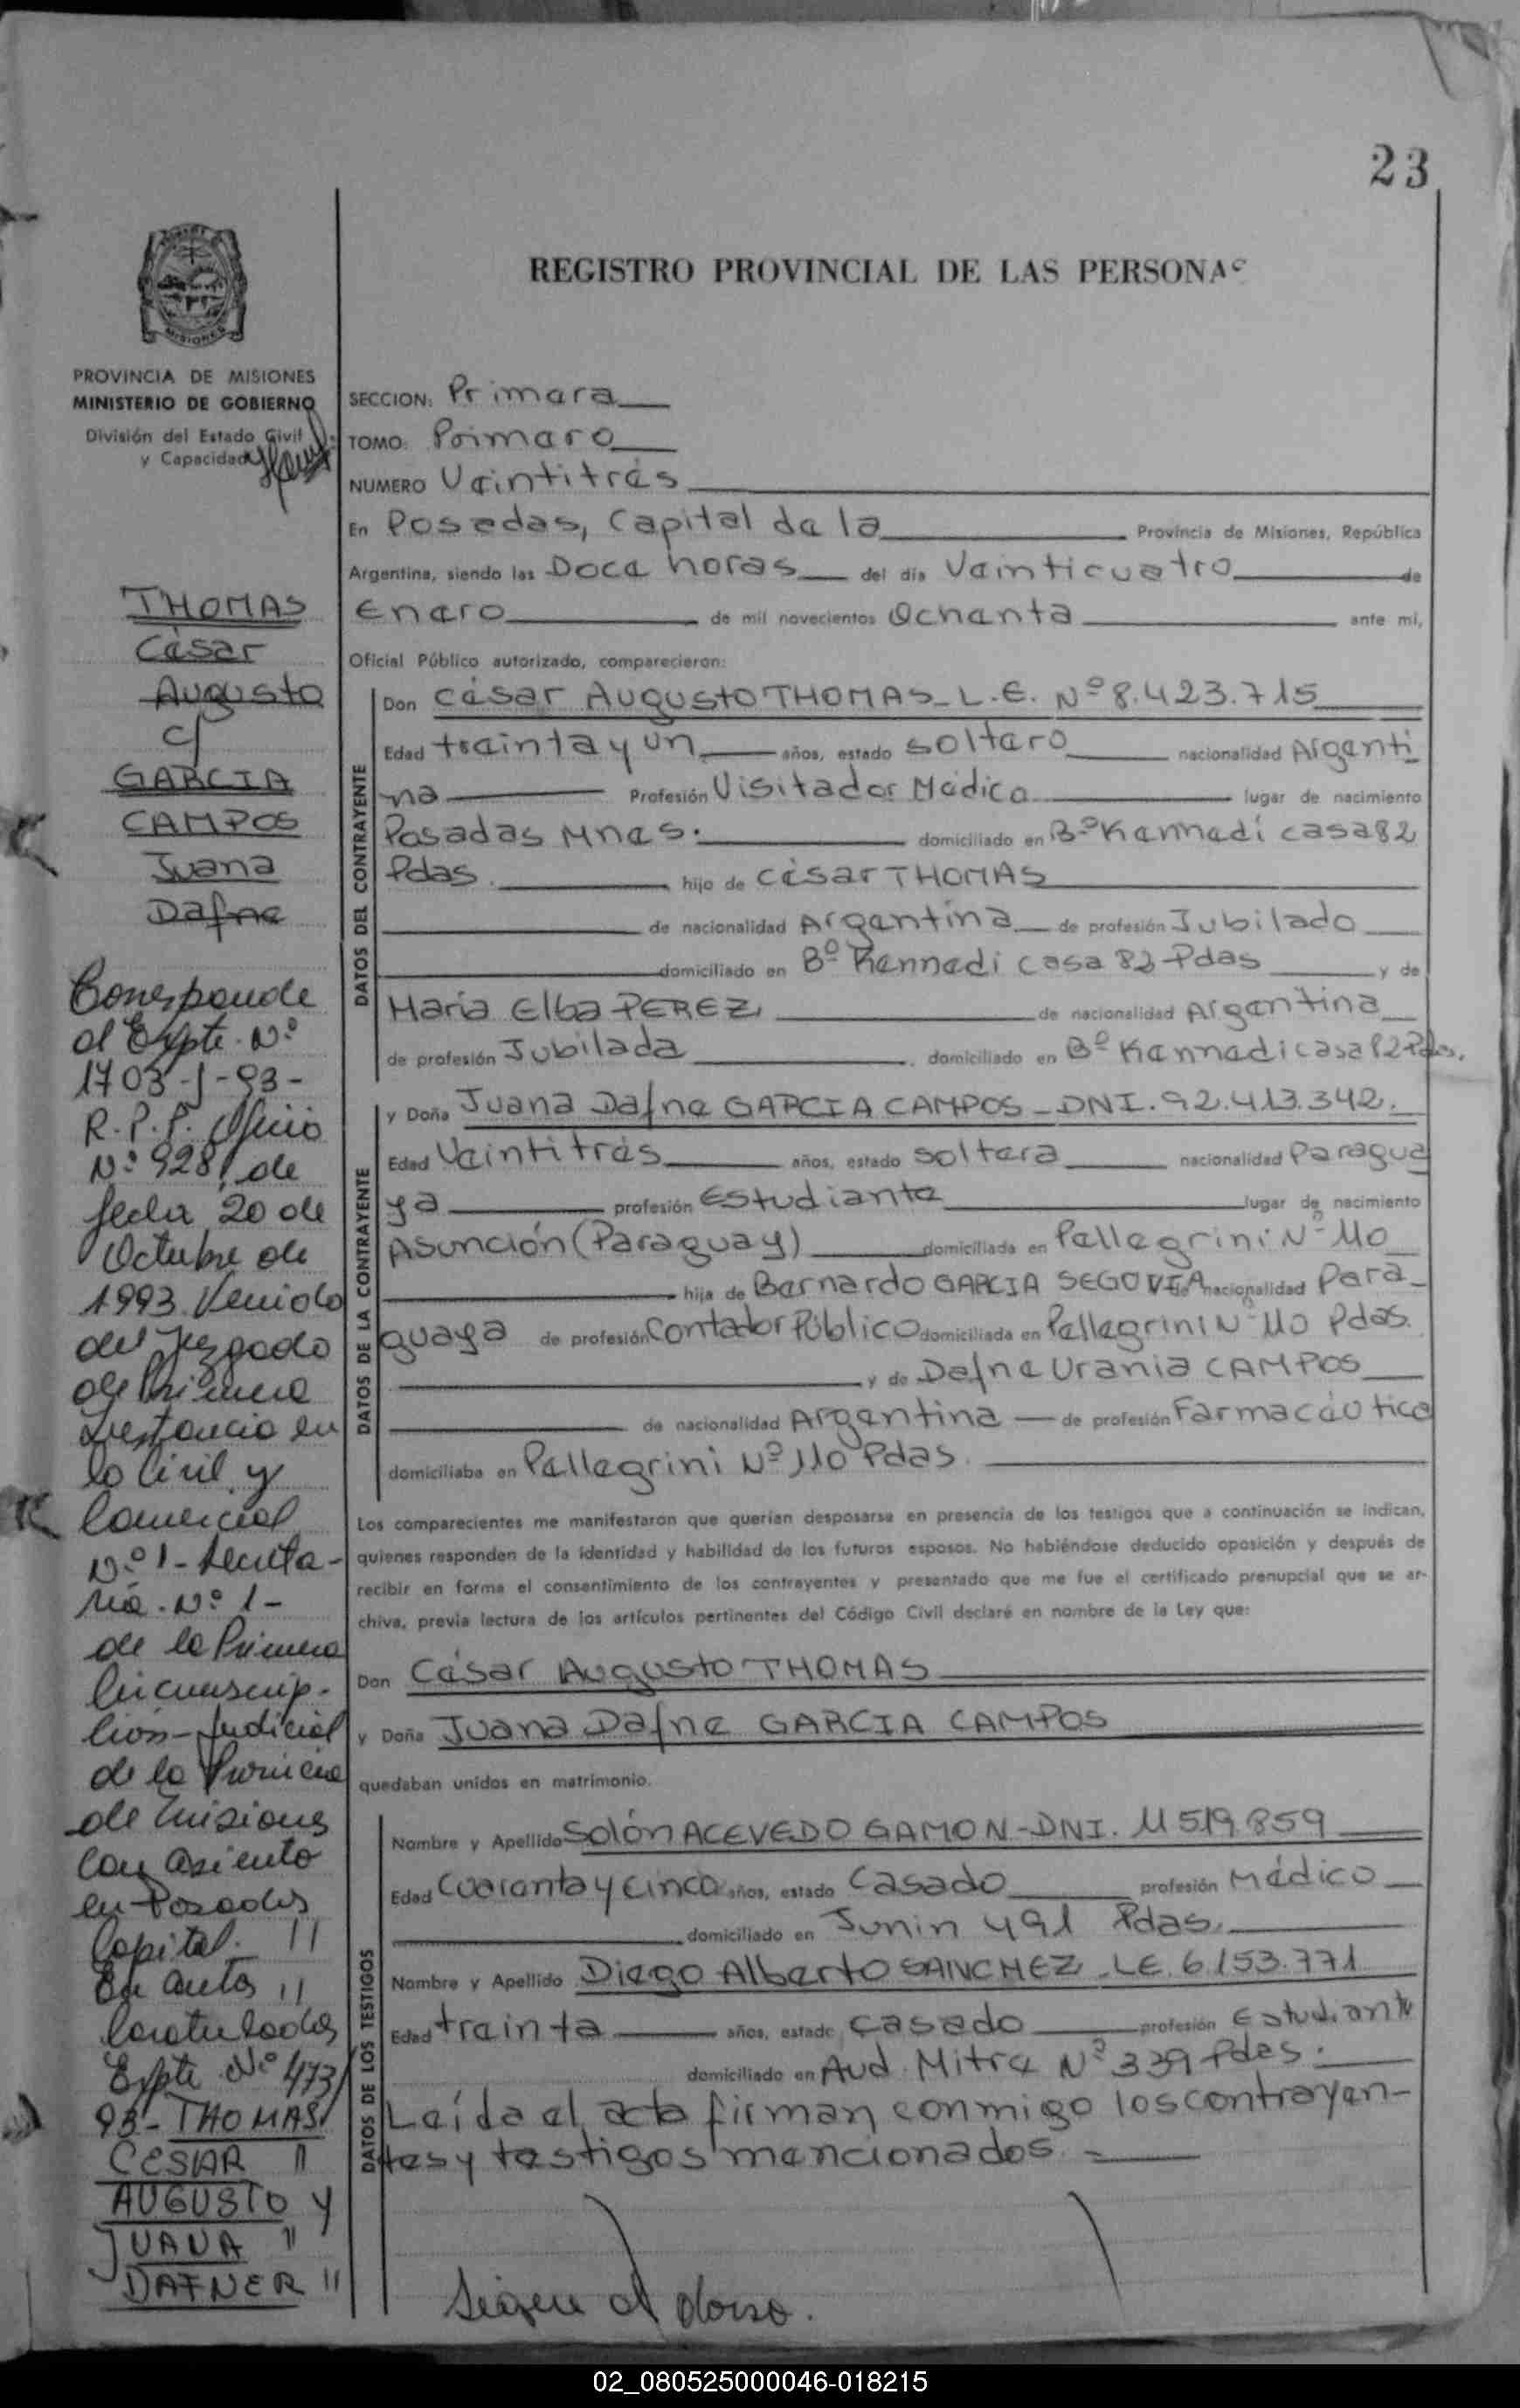 23
REGISTRO PROVINCIAL DE LAS PERSONAS
MISIONES
PROVINCIA DE MISIONES
MINISTERIO DE GOBIERNO
División del Estado Civil
y Capacidad
THOMAS
César
Augusto
c/
GARCIA
CAMPOS
Juana
Dafne
Corresponde
al Expte. Nº
1703-J-93-
R.P.P. Oficio
Nº 928, de
fecha 20 de
Octubre de
1993. Venido
del Juzgado
de Primera
Instancia en
lo Civil y
Comercial
Nº 1- Secreta-
ría. Nº 1-
de la Primera
Circunscrip-
ción-Judicial
de la Provincia
de Misiones
con asiento
en Posadas
Capital. //
En autos //
Caratulados
Expte Nº 473/
93- THOMAS
CESAR //
AUGUSTO Y
JUANA //
DAFNER //
SECCION: Primera
TOMO: Primero
NUMERO Veintitrés
En Posadas, Capital de la Provincia de Misiones, República
Argentina, siendo las Doce horas del día Veinticuatro de
Enero de mil novecientos Ochenta ante mí,
Oficial Público autorizado, comparecieron:
DATOS DEL CONTRAYENTE
Don César Augusto THOMAS_ L.E. Nº 8.423.715
Edad treinta y un años, estado soltero nacionalidad Argenti
na Profesión Visitador Médico lugar de nacimiento
Posadas Mnes. domiciliado en Bº Kennedi casa 82
Pdas. hijo de César THOMAS
de nacionalidad Argentina de profesión Jubilado
domiciliado en Bº Kennedi casa 82 Pdas y de
María Elba PEREZ de nacionalidad Argentina
de profesión Jubilada domiciliado en Bº Kennedi casa 82 Pdas.
DATOS DE LA CONTRAYENTE
y Doña Juana Dafne GARCIA CAMPOS _ DNI. 92.413.342.
Edad Veintitrés años, estado soltera nacionalidad Paragua
ya profesión Estudiante lugar de nacimiento
Asunción (Paraguay) domiciliada en Pellegrini Nº 110
hija de Bernardo GARCIA SEGOVIA de nacionalidad Para_
guaya de profesión Contador Público domiciliada en Pellegrini Nº 110 Pdas.
y de Dafne Urania CAMPOS
de nacionalidad Argentina de profesión Farmacéutica
domiciliaba en Pellegrini Nº 110 Pdas.
Los comparecientes me manifestaron que querían desposarse en presencia de los testigos que a continuación se indican,
quienes responden de la identidad y habilidad de los futuros esposos. No habiéndose deducido oposición y después de
recibir en forma el consentimiento de los contrayentes y presentado que me fue el certificado prenupcial que se ar-
chiva, previa lectura de los artículos pertinentes del Código Civil declaré en nombre de la Ley que:
Don César Augusto THOMAS
y Doña Juana Dafne GARCIA CAMPOS
quedaban unidos en matrimonio.
DATOS DE LOS TESTIGOS
Nombre y Apellido Solón ACEVEDO GAMON-DNI. 11519.859
Edad Cuarenta y cinco años, estado Casado profesión Médico
domiciliado en Junin 491 Pdas.
Nombre y Apellido Diego Alberto SANCHEZ _LE. 6.153.771
Edad treinta años, estado Casado profesión Estudiante
domiciliado en Avd. Mitre Nº 339 Pdas.
Leída el acta firman conmigo los contrayen-
tes y testigos mencionados. =
Sigue al dorso.
02_080525000046-018215